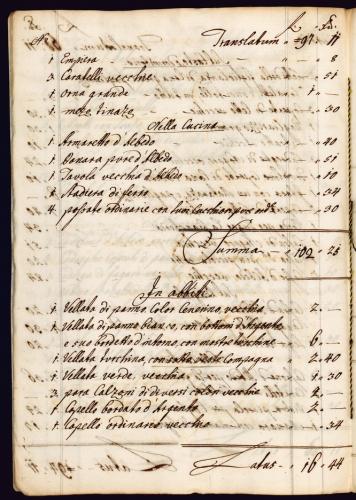 N° Translatum „ 97 „ 11
1. Empera „ „ 8
3. Caratelli vecchie „ „ 51
1. Orna grande „ 1 „ —
1. meze Tinazze „ „ 30
Nella Cucina
1. Armaretto d'Albedo „ „ 40
1. Panara pure d'Albedo „ „ 51
1. Tavola vecchia d'Albedo „ „ 10
1. Stadiera di ferro „ „ 34
4. possate ordinarie con suoi Cucchiari pure ord.e „ „ 30
Summa „ 102 „ 25
In abbiti
1. Vellata di panno Color Cenerino, vecchia 2 „ —
1. Vellata di panno bianco, con bottoni d'Argento
e suo bordetto d'intorno, con mostre 6 „ —
1. Vellata turchina, con sotto veste Compagna 2 „ 40
1. Vellata verde vecchia 1 „ 30
3. para Calzoni di diversi colori vecchie 2 „ —
1. Capello bordato d'Argento 2 „ —
1. Capello ordinario vecchio „ 34
Latus „ 16 „ 44